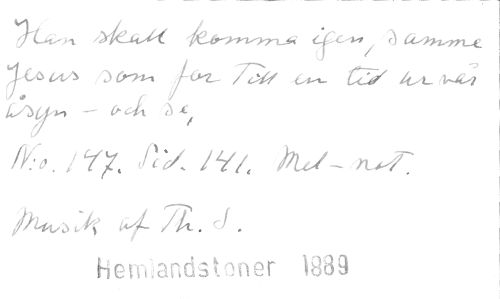 Han skall komma igen, samme
Jesus som for till en tid ur vår
åsyn – och se,
N:o. 147. Sid. 141. Mel – not.
Musik af Th. S.
Hemlandstoner 1889